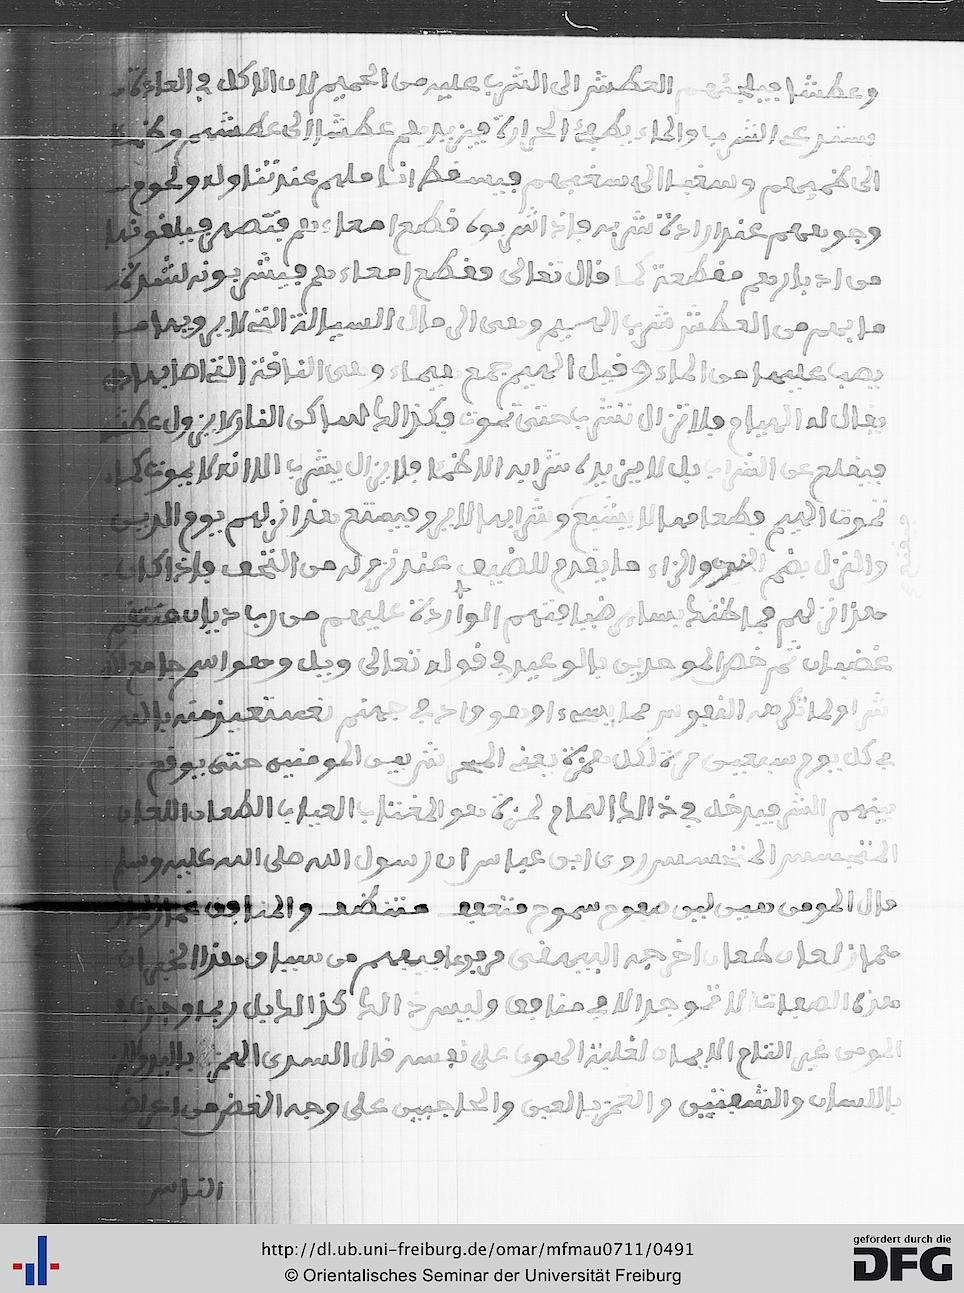 وعطشا فيلجئهم العطش الى الشرب عليه من الحميم لان الاكل في العادة
يستدعي الشرب والماء يطفئ الحرارة فيزيدهم عطشا الى عطشهم
الى ظميهم وسغبا الى سغبهم فيسقط انيا ملهم عند تناوله ولحوم
وجوههم عند ارادة شربه فاذا شربوه قطع امعاءهم
من ادبارهم مقطعة كما قال تعالى فقطع امعاءهم فيشربونه لشدة
ما بهم من العطش شرب الهيم وهى الرمال السيالة التى لا يرويها ما
يصب عليها من الماء وقيل الهيم جمع هيماء وهى الناقة التى اصابها داء
يقال له الهيام فلا تزال تشرب حتى تموت فكذالك ساكن النار لا يزول عطشه
فيقلع عن الشراب بل لا يزيده شرابه الا ظمئا فلا يزال يشرب الا انه لا يموت كما
تموت الهيم فطعامها لا يشبع وشرابها لا يروي هذا نزلهم يوم الدين
والنزل بضم النون والزاء ما يقدم للضيف عند نزوله من التحف فاذا كان
هذا نزلهم فما ظنك بساير ضيافتهم الواردة عليهم من رب ديان منتقم
غضبان ثم خص الموحدين بالوعيد في قوله تعالى ويل وهو اسم جامع لكل
شر ولما تكرهه النفوس مما يسوء او هو واد في جهنم تستعيذ منه بالله
في كل يوم سبعين مرة لكل همزة يعنى المحرش بين المومنين حتى يوقع
بينهم الشر فيدخل في ذالك النمام لمزة هو المغتاب العياب الطعان اللعان
المتجسس المتحسس روى ابن عباس ان رسول الله صلى الله عليه وسلم
قال المومن هين لين سموح والمنافق
غماز لعان طعان اخرجه البيهقى مرفوعا فيفهم من سياق هذا الخبر ان
هذه الصفات لا توجد الا في منافق وليس ذالك كذالك بل ربما وجدت في
المومن غير التام الايمان لغلبة الهوى على نفسه قال السدى الهمز باليد واللمز
باللسان والشفتين والغمز بالعين والحاجبين على وجه الغض من اعراض
الناس
http://dl.ub.uni-freiburg.de/omar/mfmau0711/0491
© Orientalisches Seminar der Universität Freiburg
gefördert durch die
DFG